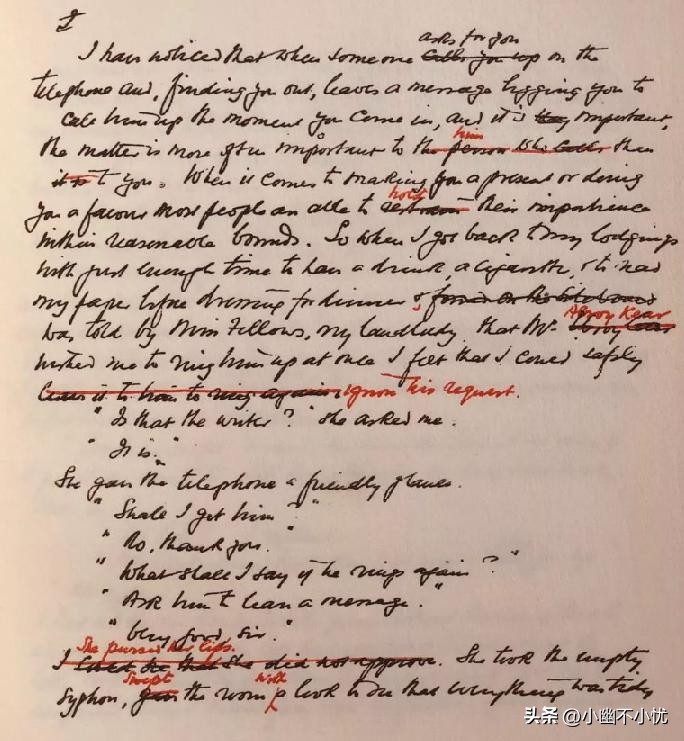 I
asks for you
I have noticed that when someone calls you up on the
telephone and, finding you out, leaves a message begging you to
call him up the moment you come in, and it is important,
him
the matter is more often important to the person who calls than
it is to you. When it comes to making you a present or doing
hold
you a favour most people are able to restrain their impatience
within reasonable bounds. So when I got back to my lodgings
with just enough time to have a drink, a cigarette, & to read
my paper before dressing for dinner &
Alroy Kear
was told by Miss Fellows, my landlady, that Mr. Alroy Kear
wished me to ring him up at once I felt that I could safely
leave it to him to ring again ignore his request.
"Is that the writer?" she asked me.
"It is."
She gave the telephone a friendly glance.
"Shall I get him?"
"No, thank you.
"What shall I say if he rings again?"
"Ask him to leave a message."
"Very good, sir."
She pursed her lips.
I that she did not approve. She took the empty
swept with
syphon, gave the room a look to see that everything was tidy
头条 @小幽不小忧